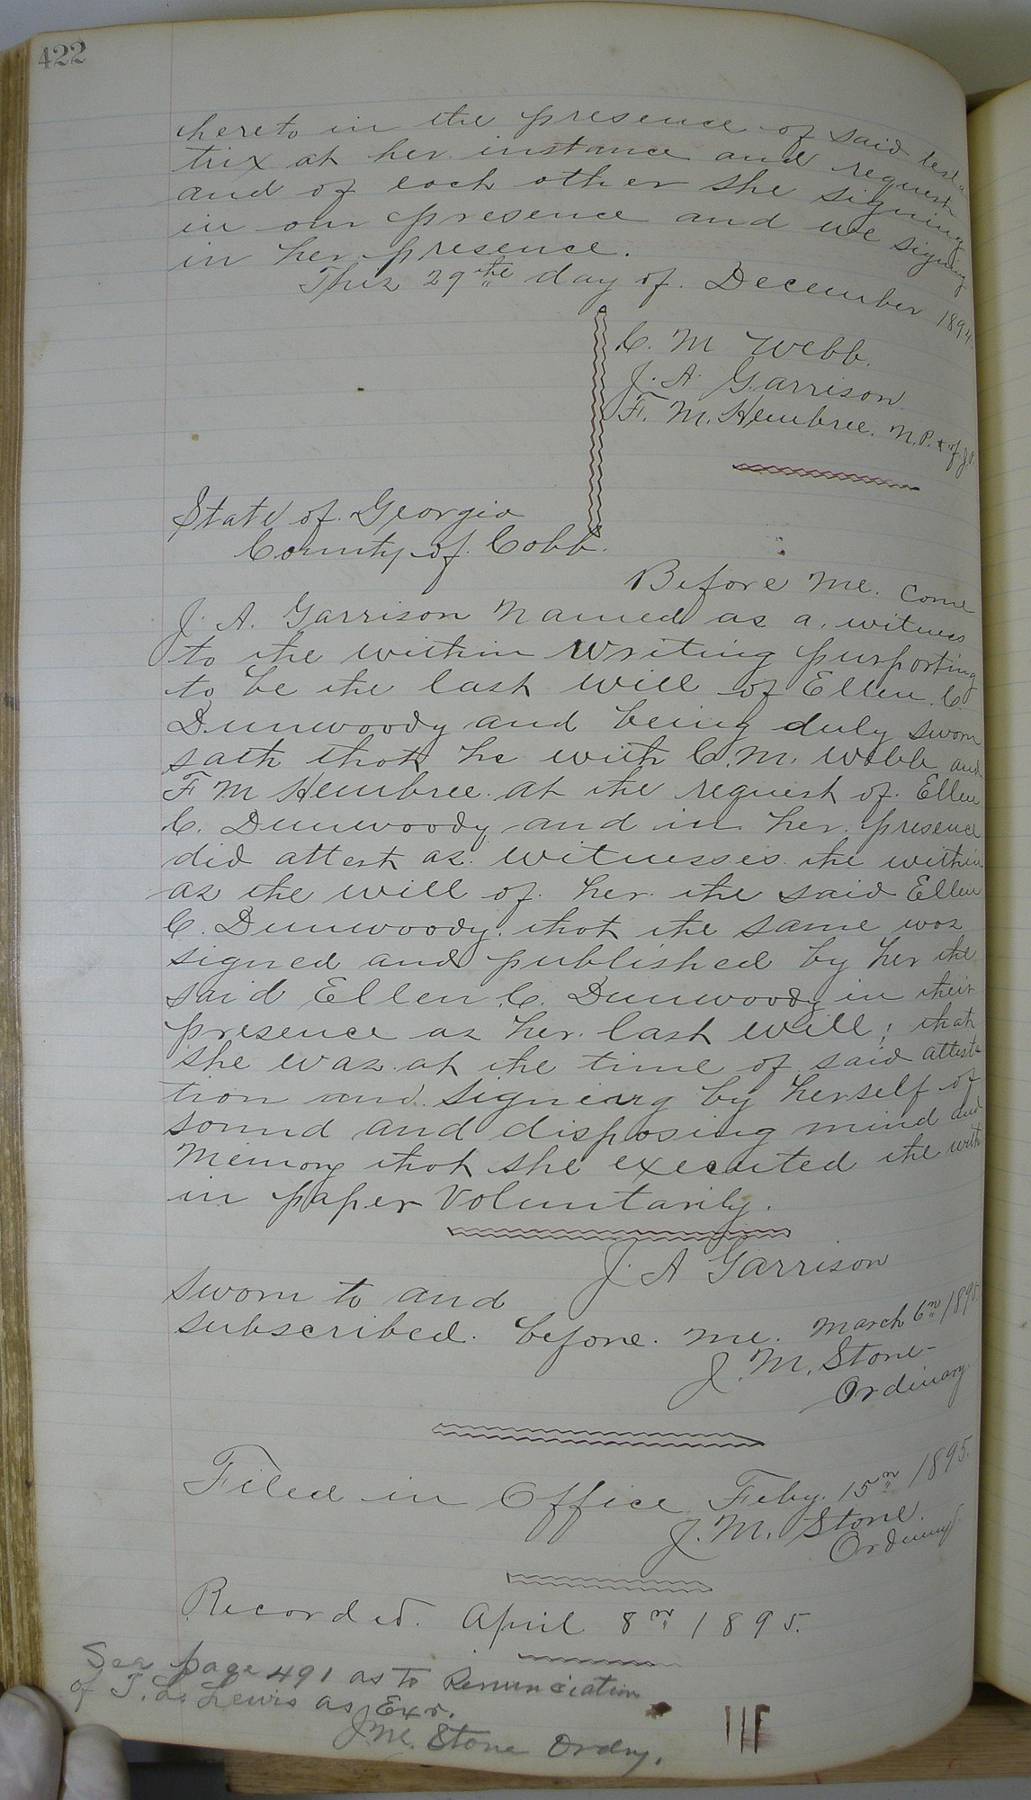 422
hereto in the presence of said testa
trix at her instance and request
and of each other she signing
in our presence and we signing
in her presence.
This 29th day of December 1894.
C. M Webb.
J. A. Garrison
F. M. Hembree. N.P. & Ex of J.P.
State of Georgia
County of Cobb.
Before me. come
J. A. Garrison named as a witness
to the within writing purporting
to be the last will of Ellen C.
Dunwoody and being duly sworn
sath that he with C. M. Webb and
F M Hembree at the request of Ellen
C. Dunwoody and in her presence
did attest as witnesses the within
as the will of her the said Ellen
C. Dunwoody. that the same was
signed and published by her the
said Ellen C. Dunwoody in their
presence as her last will; that
she was at the time of said attesta
tion and signing by herself of
sound and disposing mind and
memory that she executed the with
in paper voluntarily.
J. A Garrison
Sworn to and
subscribed. before. me. March 6th 1895.
J. M. Stone
Ordinary.
Filed in Office Feby. 15th 1895.
J. M. Stone.
Ordinary
Recorded. April 8th 1895.
See page 491 as to Renunciation
of T. Lewis as Exr.
J. M. Stone Ordny.